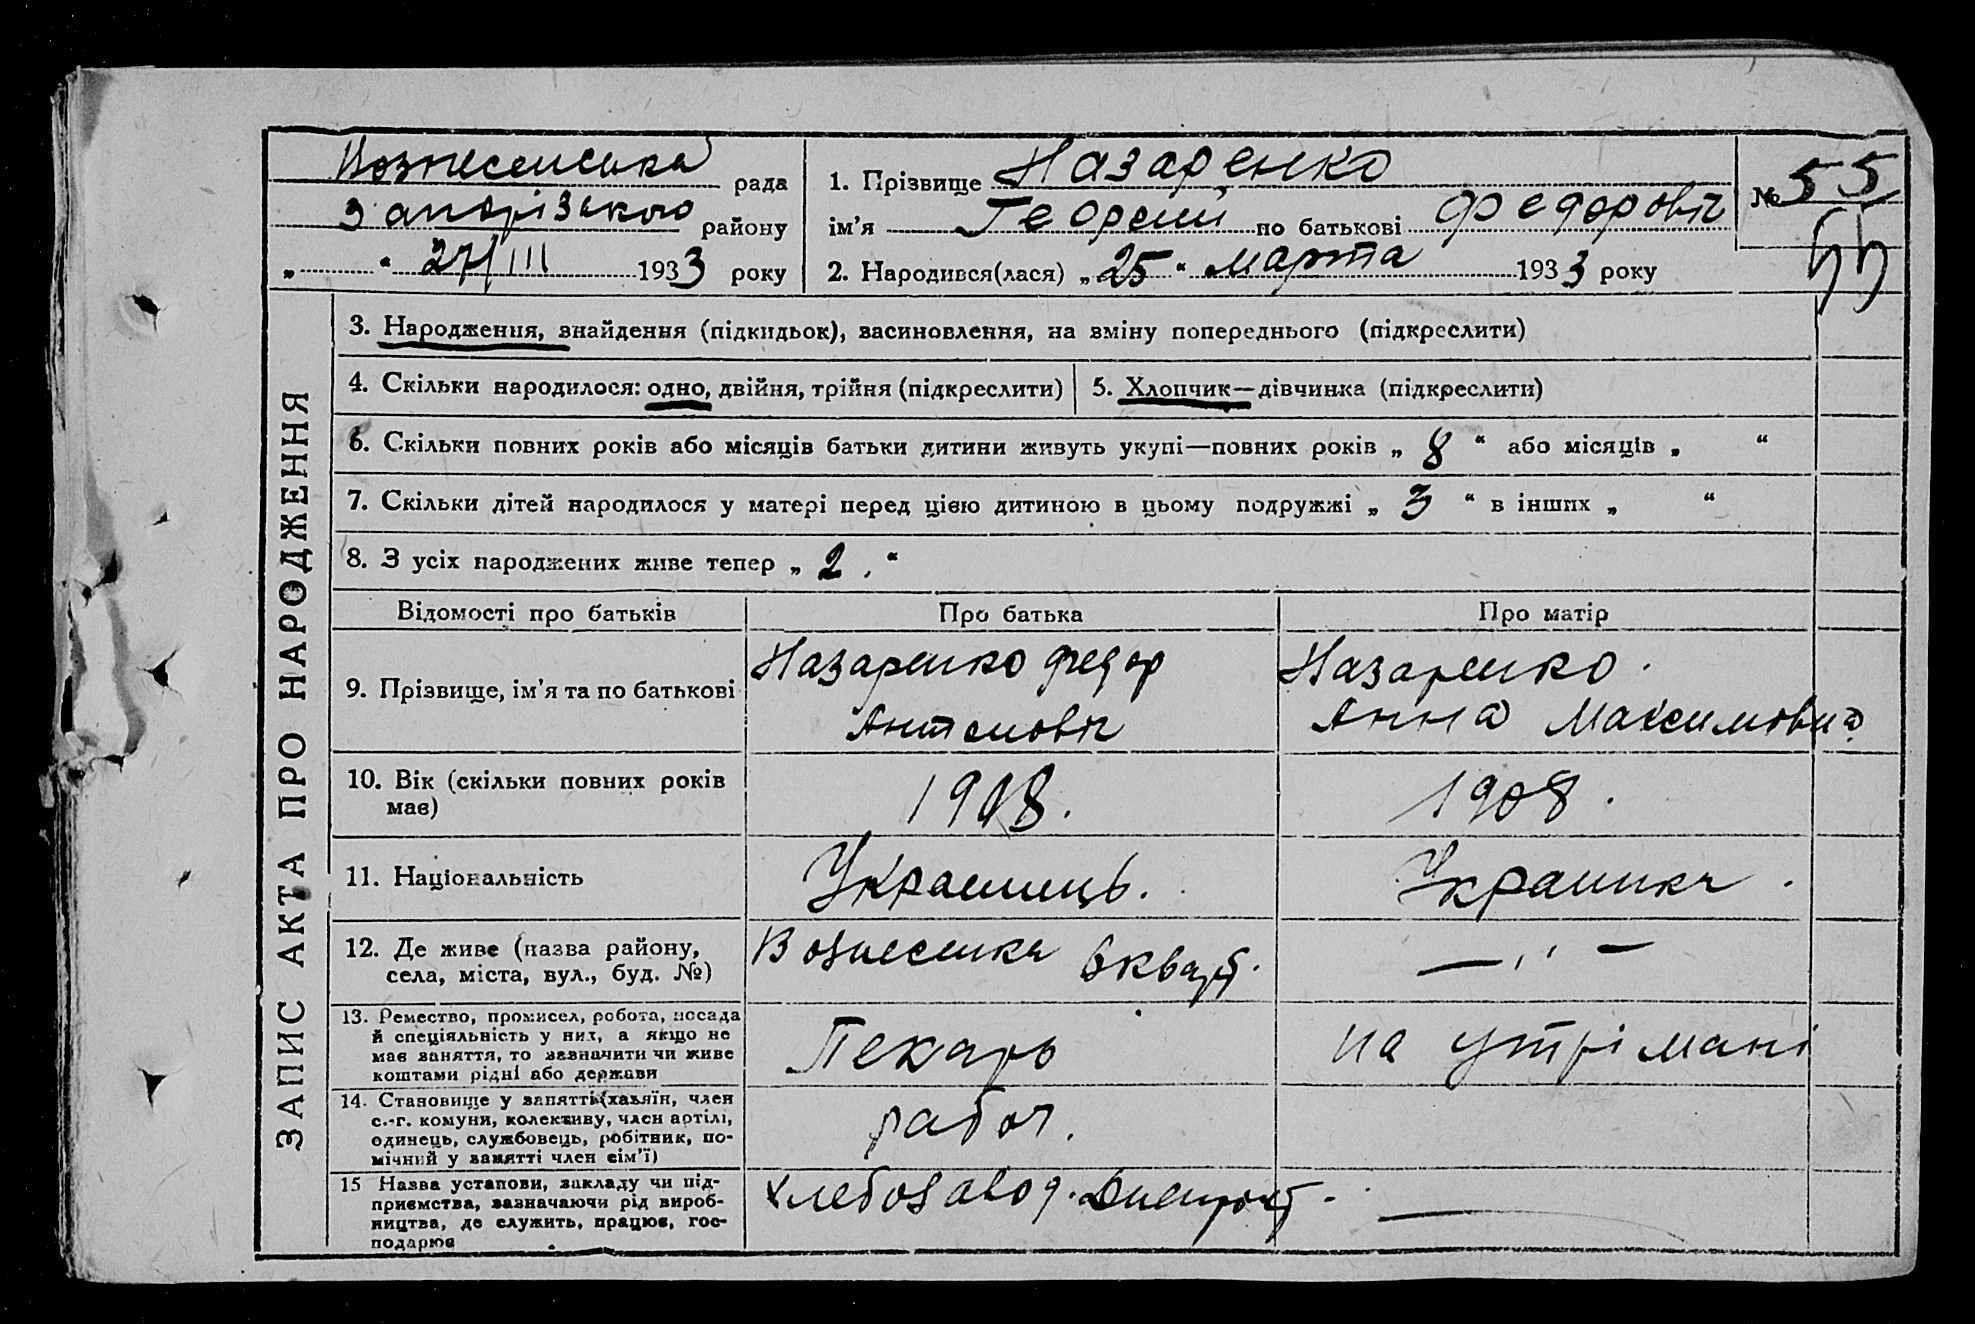 Вознесенська рада
Запорізького району
„ “ 27/III 1933 року
1. Прізвище Назаренко
ім’я Георгий по батькові Федоровіч
2. Народився(лася) „25“ марта 1933 року
№ 55
55
ЗАПИС АКТА ПРО НАРОДЖЕННЯ
3. Народження, знайдення (підкидьок), засиновлення, на зміну попереднього (підкреслити)
4. Скільки народилося: одно, двійня, трійня (підкреслити)
5. Хлопчик—дівчинка (підкреслити)
6. Скільки повних років або місяців батьки дитини живуть укупі—повних років „ 8 “ або місяців „ “
7. Скільки дітей народилося у матері перед цією дитиною в цьому подружжі „ 3 “ в інших „ “
8. З усіх народжених живе тепер „ 2. “
Відомості про батьків
Про батька
Про матір
9. Прізвище, ім’я та по батькові
Назаренко Федор
Антоновіч
Назаренко
Анна Максимовна
10. Вік (скільки повних років
має)
1908.
1908.
11. Національність
Украинець.
Украинка.
12. Де живе (назва району,
села, міста, вул., буд. №)
Вознесенка 6 кварт.
— „ —
13. Ремество, промисел, робота, посада
й спеціяльність у них, а якщо не
має заняття, то зазначити чи живе
коштами рідні або держави
Пекарь
на утрімані
14. Становище у занятті (хазяїн, член
с.-г. комуни, колективу, член артілі,
одинець, службовець, робітник, по-
мічний у занятті член сім’ї)
рабоч.
15 Назва установи, закладу чи під-
приємства, зазначаючи рід вироб-
ництва, де служить, працює, гос-
подарює
хлебозавод.